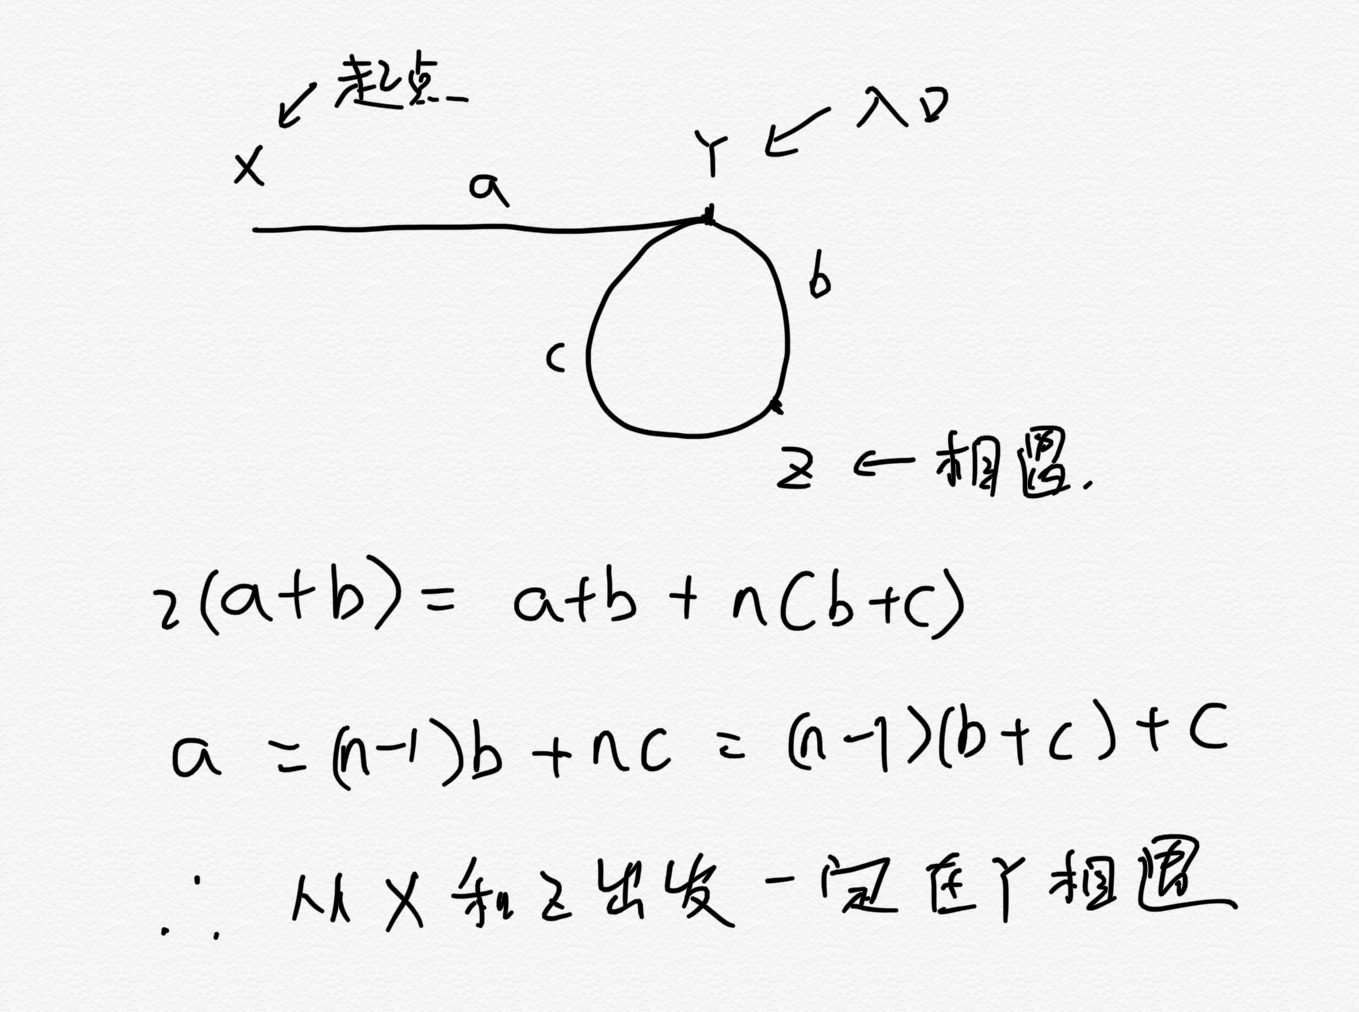 起点
入口
X
Y
a
b
c
Z
相遇.
2(a+b) = a+b + n(b+c)
a = (n-1)b + nc = (n-1)(b+c) + c
∴ 从X和Z出发一定在Y相遇